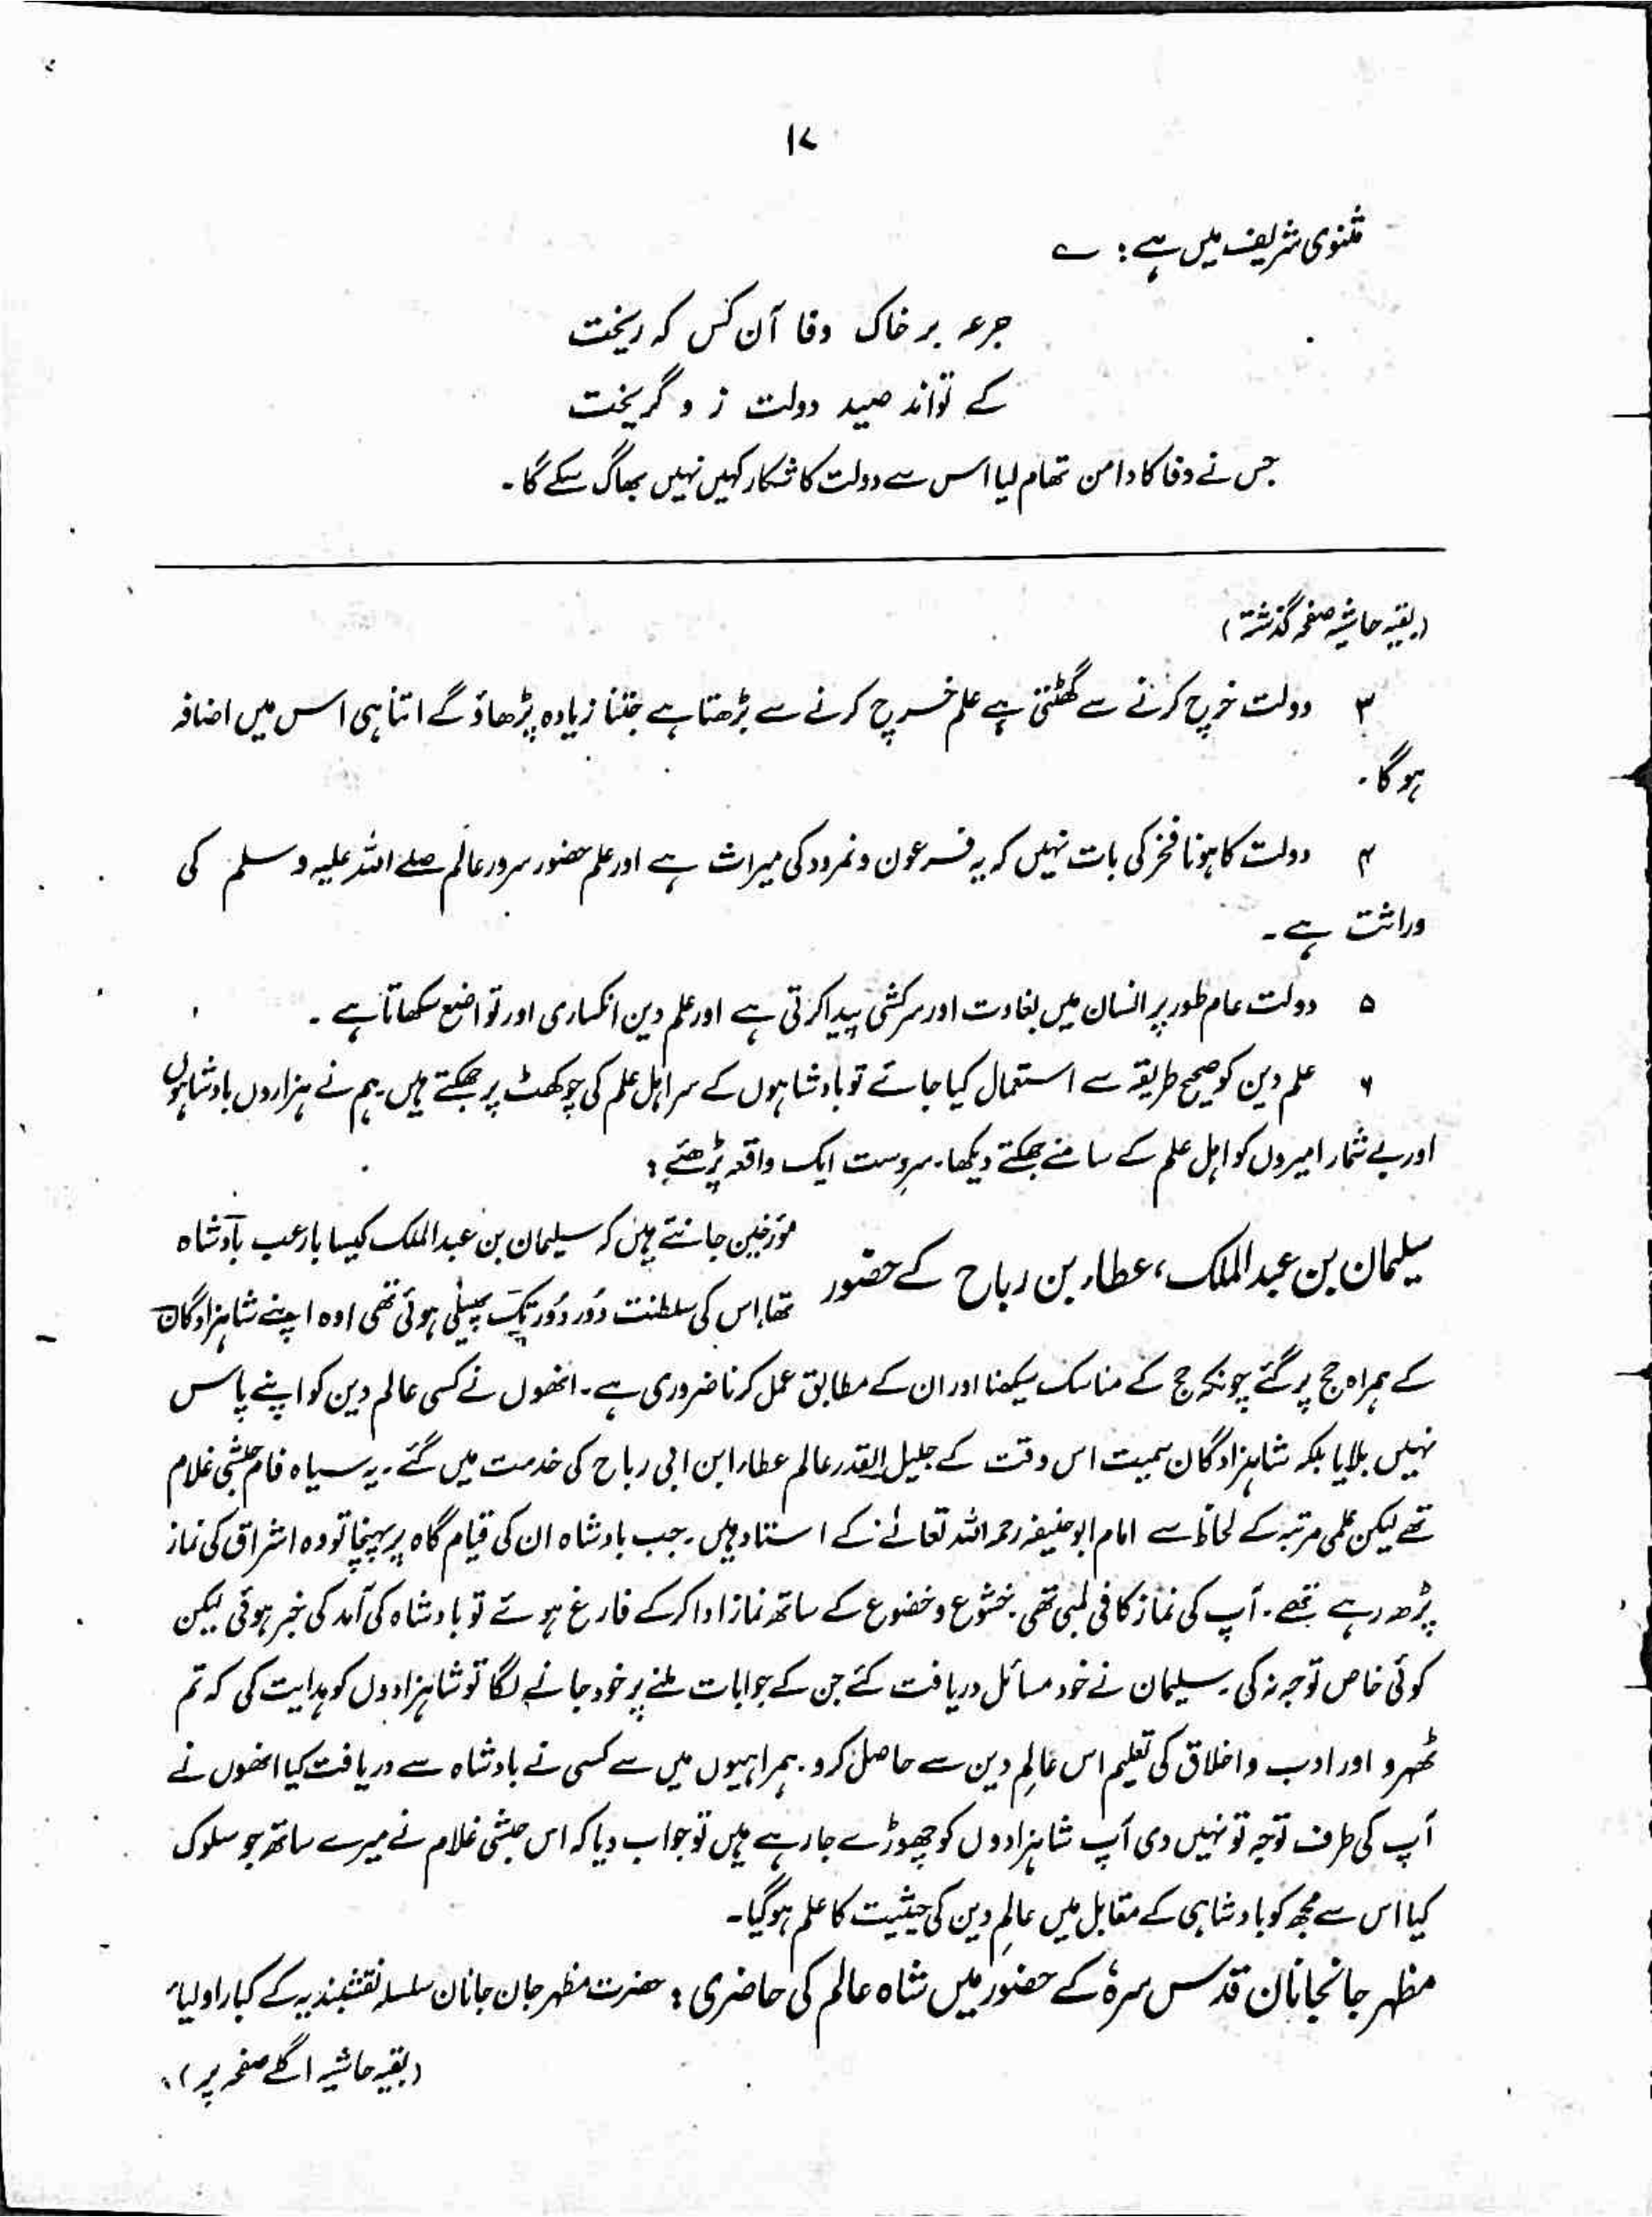 ۱۷
مثنوی شریف میں ہے : ؎
جرعہ بر خاک وفا آن کس کہ ریخت
کے تواند صید دولت ز و گریخت
جس نے وفا کا دامن تھام لیا اس سے دولت کا شکار کہیں نہیں بھاگ سکے گا۔
(بقیہ حاشیہ صفحہ گذشتہ)
۳ دولت خرچ کرنے سے گھٹتی ہے علم خرچ کرنے سے بڑھتا ہے جتنا زیادہ پڑھاؤ گے اتنا ہی اس میں اضافہ
ہوگا۔
۴ دولت کا ہونا فخر کی بات نہیں کہ یہ فرعون و نمرود کی میراث ہے اور علم حضور سرور عالم صلے اللہ علیہ وسلم کی
وراثت ہے۔
۵ دولت عام طور پر انسان میں بغاوت اور سرکشی پیدا کرتی ہے اور علم دین انکساری اور تواضع سکھاتا ہے۔
۶ علم دین کو صحیح طریقہ سے استعمال کیا جائے تو بادشاہوں کے سر اہل علم کی چوکھٹ پر جھکتے ہیں۔ ہم نے ہزاروں بادشاہوں
اور بے شمار امیروں کو اہل علم کے سامنے جھکتے دیکھا۔ سرِدست ایک واقعہ پڑھئے :
سلیمان بن عبد الملک، عطاء بن رباح کے حضور مؤرخین جانتے ہیں کہ سلیمان بن عبد الملک کیسا بارعب بادشاہ
تھا، اس کی سلطنت دُور دُور تک پھیلی ہوئی تھی اوہ اپنے شاہزادگان
کے ہمراہ حج پر گئے چونکہ حج کے مناسک سیکھنا اور ان کے مطابق عمل کرنا ضروری ہے۔ انھوں نے کسی عالم دین کو اپنے پاس
نہیں بلایا بلکہ شاہزادگان سمیت اس وقت کے جلیل القدر عالم عطاء ابن ابی رباح کی خدمت میں گئے۔ یہ سیاہ فام حبشی غلام
تھے لیکن علمی مرتبہ کے لحاظ سے امام ابو حنیفہ رحمہ اللہ تعالےٰ کے استاد ہیں۔ جب بادشاہ ان کی قیام گاہ پر پہنچا تو وہ اشراق کی نماز
پڑھ رہے تھے۔ آپ کی نماز کافی لمبی تھی۔ خشوع و خضوع کے ساتھ نماز ادا کرکے فارغ ہوئے تو بادشاہ کی آمد کی خبر ہوئی لیکن
کوئی خاص توجہ نہ کی۔ سلیمان نے خود مسائل دریافت کئے جن کے جوابات ملنے پر خود جانے لگا تو شاہزادوں کو ہدایت کی کہ تم
ٹھہرو اور ادب و اخلاق کی تعلیم اس عالمِ دین سے حاصل کرو۔ ہمراہیوں میں سے کسی نے بادشاہ سے دریافت کیا انھوں نے
آپ کی طرف توجہ تو نہیں دی آپ شاہزادوں کو چھوڑے جا رہے ہیں تو جواب دیا کہ اس حبشی غلام نے میرے ساتھ جو سلوک
کیا اس سے مجھ کو بادشاہی کے مقابل میں عالمِ دین کی حیثیت کا علم ہوگیا۔
مظہر جانجاناں قدس سرہٗ کے حضور میں شاہ عالم کی حاضری : حضرت مظہر جان جانان سلسلہ نقشبندیہ کے کبار اولیاء
(بقیہ حاشیہ اگلے صفحہ پر)